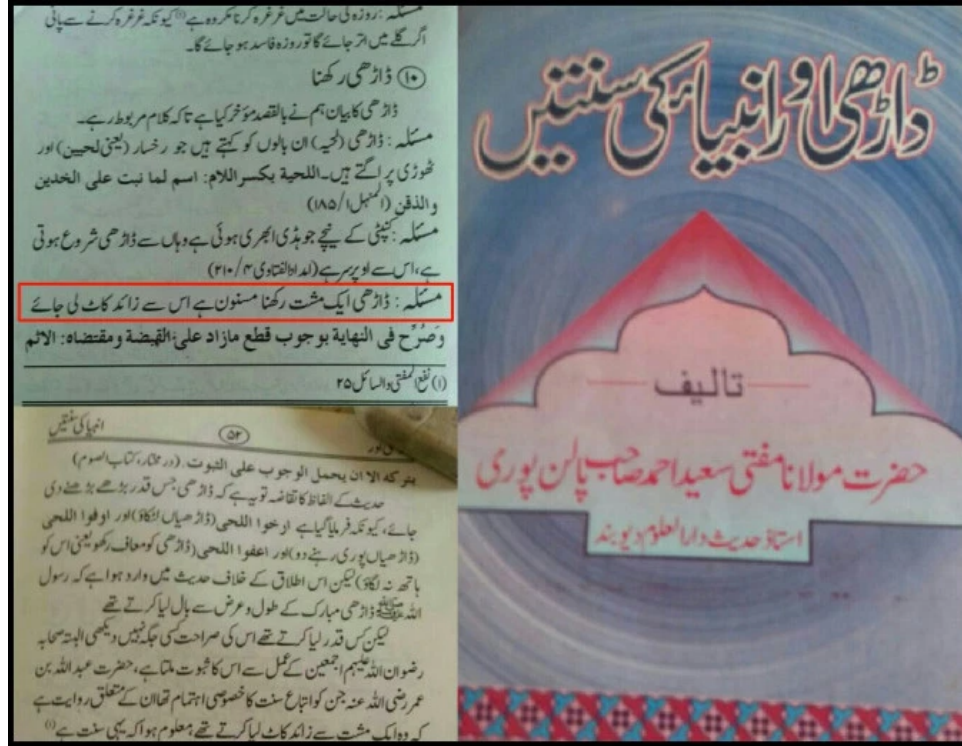 مسئلہ: روزہ کی حالت میں غرغرہ کرنا مکروہ ہے (۱) کیونکہ غرغرہ کرنے سے پانی
اگر گلے میں اتر جائے گا تو روزہ فاسد ہو جائے گا۔
(۱۰) ڈاڑھی رکھنا
ڈاڑھی کا بیان ہم نے بالقصد مؤخر کیا ہے تاکہ کلام مربوط رہے۔
مسئلہ: ڈاڑھی (لحیہ) ان بالوں کو کہتے ہیں جو رخسار (یعنی لحیین) اور
ٹھوڑی پر اگتے ہیں۔ اللحیة بکسر اللام: اسم لما نبت علی الخدین
والذقن (المنہل ۱/۱۸۵)
مسئلہ: کنپٹی کے نیچے جو ہڈی ابھری ہوئی ہے وہاں سے ڈاڑھی شروع ہوتی
ہے، اس سے اوپر سر ہے (امداد الفتاوی ۴/۲۱۰)
مسئلہ: ڈاڑھی ایک مشت رکھنا مسنون ہے اس سے زائد کاٹ لی جائے
وصُرّح فی النهایة بوجوب قطع مازاد علی القبضة ومقتضاه: الاثم
(۱) نفع المفتی والسائل ۲۵
انبیا کی سنتیں
(۵۲)
بترکه الا ان یحمل الوجوب علی الثبوت. (در مختار، کتاب الصوم)
حدیث کے الفاظ کا تقاضہ تو یہ ہے کہ ڈاڑھی جس قدر بڑھے بڑھنے دی
جائے، کیونکہ فرمایا گیا ہے ارخوا اللحی (ڈاڑھیاں لٹکاؤ) اور اوفوا اللحی
(ڈاڑھیاں پوری رہنے دو) اور اعفوا اللحی (ڈاڑھی کو معاف رکھو یعنی اس کو
ہاتھ نہ لگاؤ) لیکن اس اطلاق کے خلاف حدیث میں وارد ہوا ہے کہ رسول
اللہ ﷺ ڈاڑھی مبارک کے طول و عرض سے بال لیا کرتے تھے
لیکن کس قدر لیا کرتے تھے اس کی صراحت کسی جگہ نہیں دیکھی البتہ صحابہ
رضوان اللہ علیہم اجمعین کے عمل سے اس کا ثبوت ملتا ہے، حضرت عبداللہ بن
عمر رضی اللہ عنہ جن کو اتباع سنت کا خصوصی اہتمام تھا ان کے متعلق روایت ہے
کہ وہ ایک مشت سے زائد کاٹ لیا کرتے تھے معلوم ہوا کہ یہی سنت ہے (۱)
ڈاڑھی اور انبیاء کی سنتیں
تالیف
حضرت مولانا مفتی سعید احمد صاحب پالن پوری
استاذ حدیث دارالعلوم دیوبند